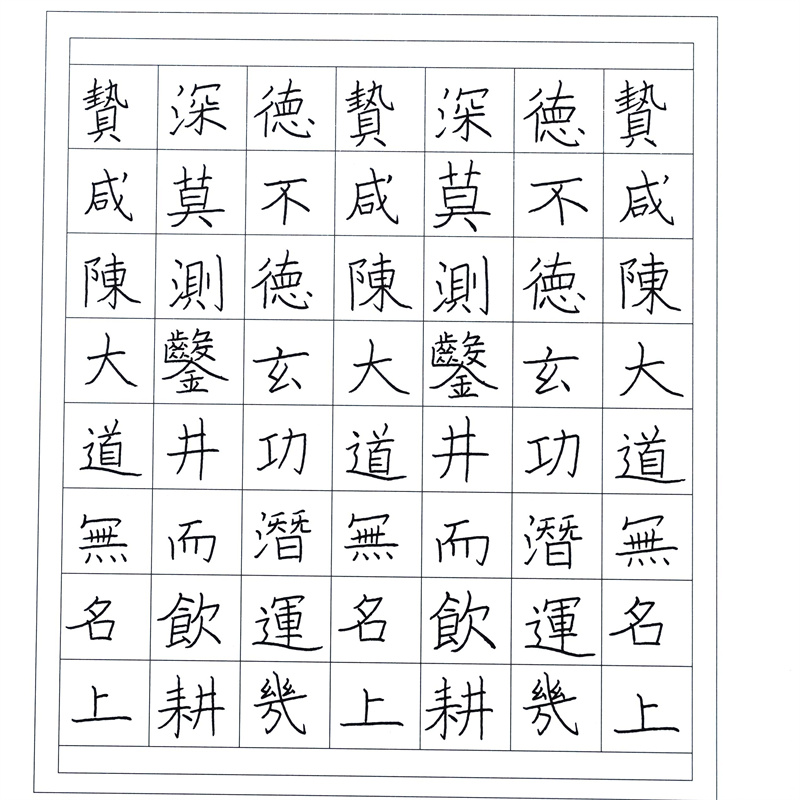 贄咸陳大道無名上
德不德玄功潛運幾
深莫測鑿井而飲耕
贄咸陳大道無名上
德不德玄功潛運幾
深莫測鑿井而飲耕
贄咸陳大道無名上